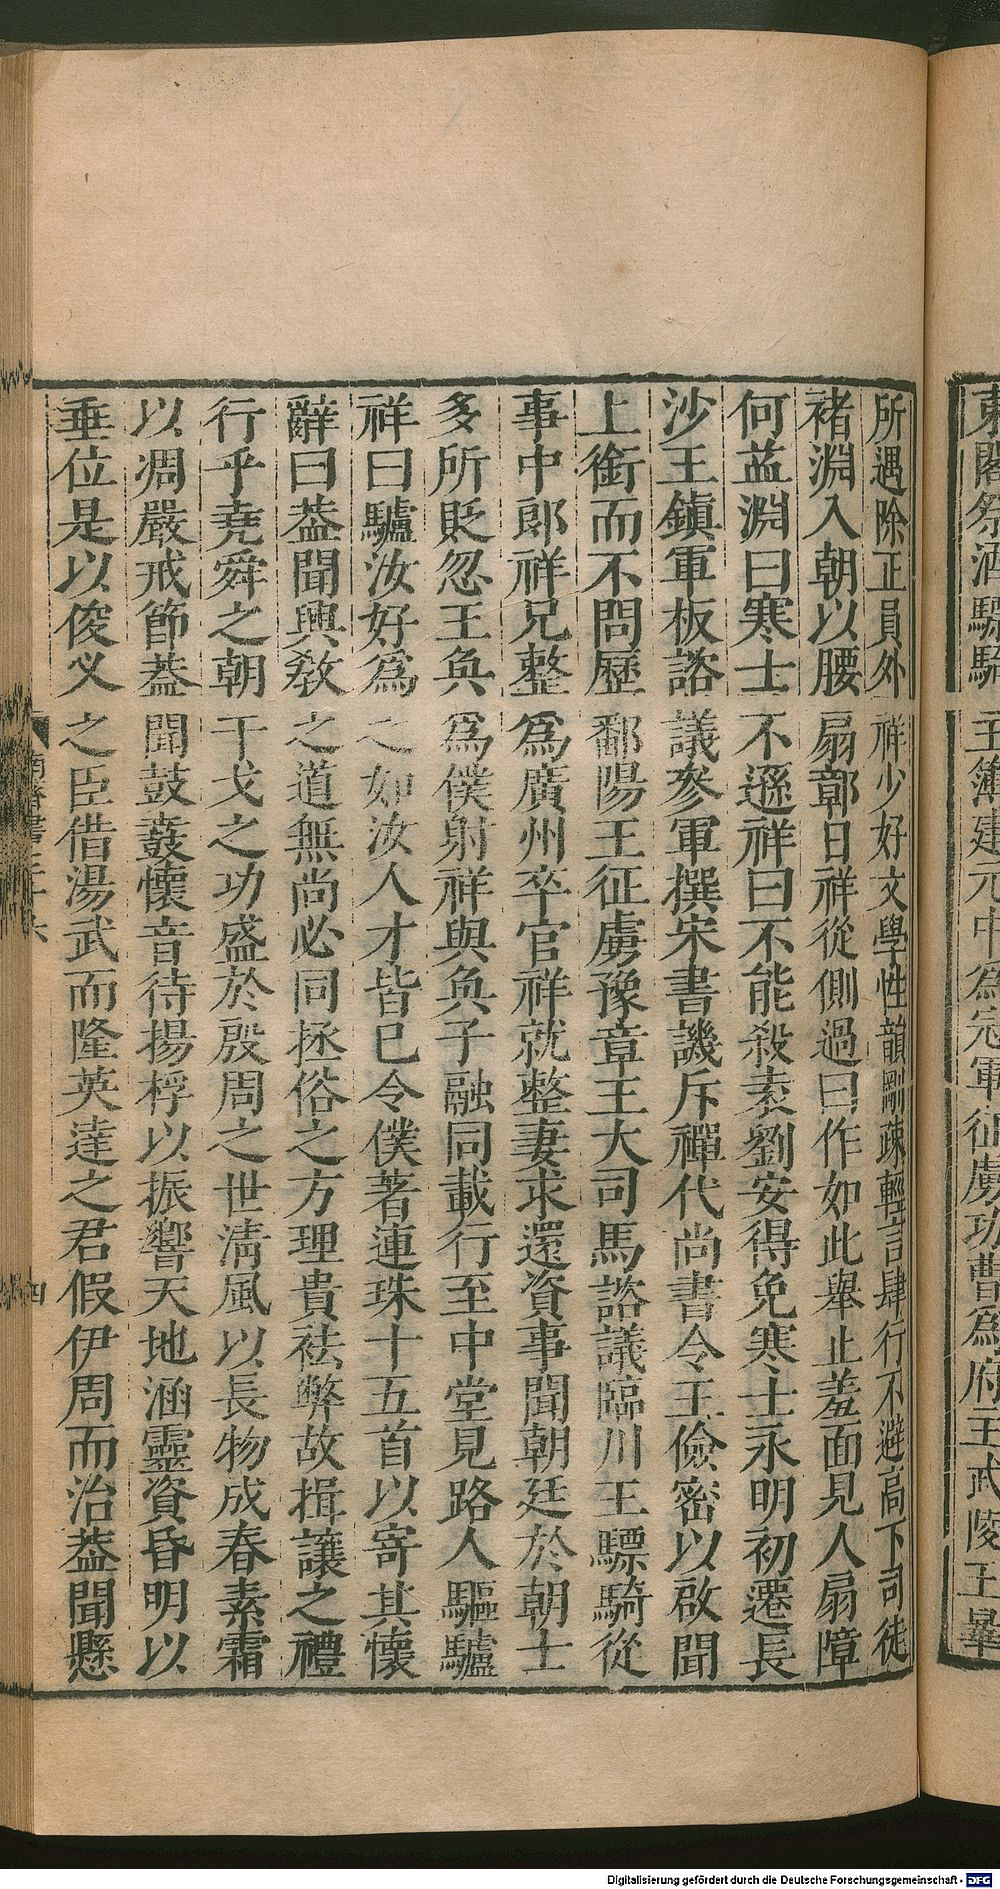 東閣祭酒驃騎主簿建元中為冠軍征虜功曹為府主武陵王曅
所遇除正員外祥少好文學性韻剛疎輕言肆行不避高下司徒
褚淵入朝以腰扇鄣日祥從側過曰作如此舉止羞面見人扇障
何益淵曰寒士不遜祥曰不能殺袁劉安得免寒士永明初遷長
沙王鎮軍板諮議參軍撰宋書譏斥禪代尚書令王儉密以啟聞
上銜而不問歷鄱陽王征虜豫章王大司馬諮議臨川王驃騎從
事中郎祥兄整為廣州卒官祥就整妻求還資事聞朝廷於朝士
多所貶忽王奐為僕射祥與奐子融同載行至中堂見路人驅驢
祥曰驢汝好為之如汝人才皆已令僕著連珠十五首以寄其懷
辭曰葢聞興敎之道無尚必同拯俗之方理貴袪弊故揖讓之禮
行乎堯舜之朝干戈之功盛於殷周之世清風以長物成春素霜
以凋嚴戒節葢聞鼓鼖懷音待揚桴以振響天地涵靈資昏明以
垂位是以俊乂之臣借湯武而隆英達之君假伊周而治葢聞懸
南齊書三十六
四
Digitalisierung gefördert durch die Deutsche Forschungsgemeinschaft - DFG